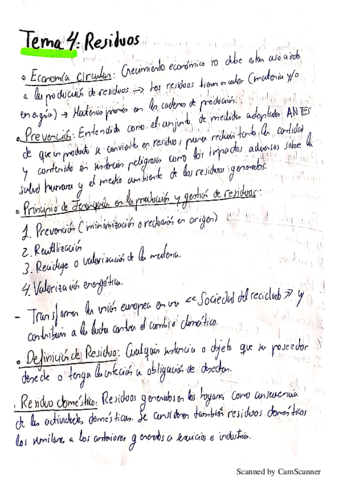 Tema 4: Residuos
Economía circular: Crecimiento económico no debe estar asociado
a la producción de residuos → Los residuos tienen valor (materia y/o
energía) → Materias primas en las cadenas de producción.
Prevención: Entendida como el conjunto de medidas adoptadas ANTES
de que un producto se convierta en residuo, para reducir tanto la cantidad
y contenido en sustancias peligrosas como los impactos adversos sobre la
salud humana y el medio ambiente de los residuos generados.
Principio de Jerarquía en la producción y gestión de residuos:
1. Prevención (minimización o reducción en origen)
2. Reutilización
3. Reciclaje o valorización de la materia.
4. Valorización energética.
- Transformar la unión europea en una << Sociedad del reciclado >> y
contribuir a la lucha contra el cambio climático.
Definición de Residuo: Cualquier sustancia u objeto que su poseedor
deseche o tenga la intención u obligación de desechar.
Residuo doméstico: Residuos generados en los hogares como consecuencia
de las actividades domésticas. Se consideran también residuos domésticos
los similares a los anteriores generados en servicios e industria.
Scanned by CamScanner